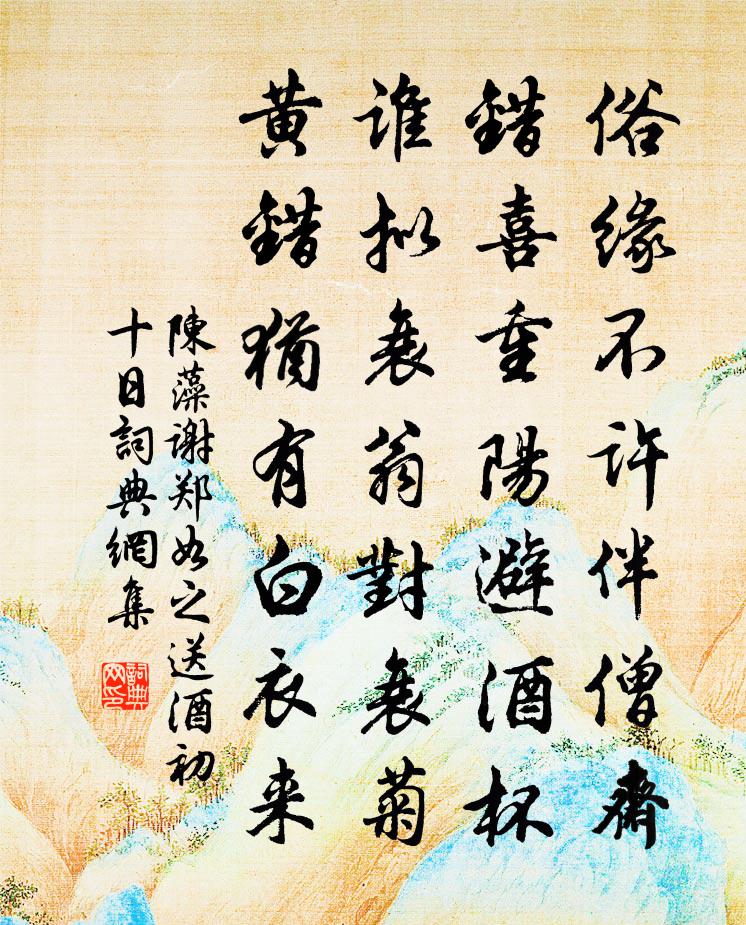 俗缘不许伴僧齋
錯喜重陽避酒杯
谁拟衰翁對衰菊
黄錯犹有白衣来
陳藻谢郑如之送酒初
十日詞典網集
詞典網印